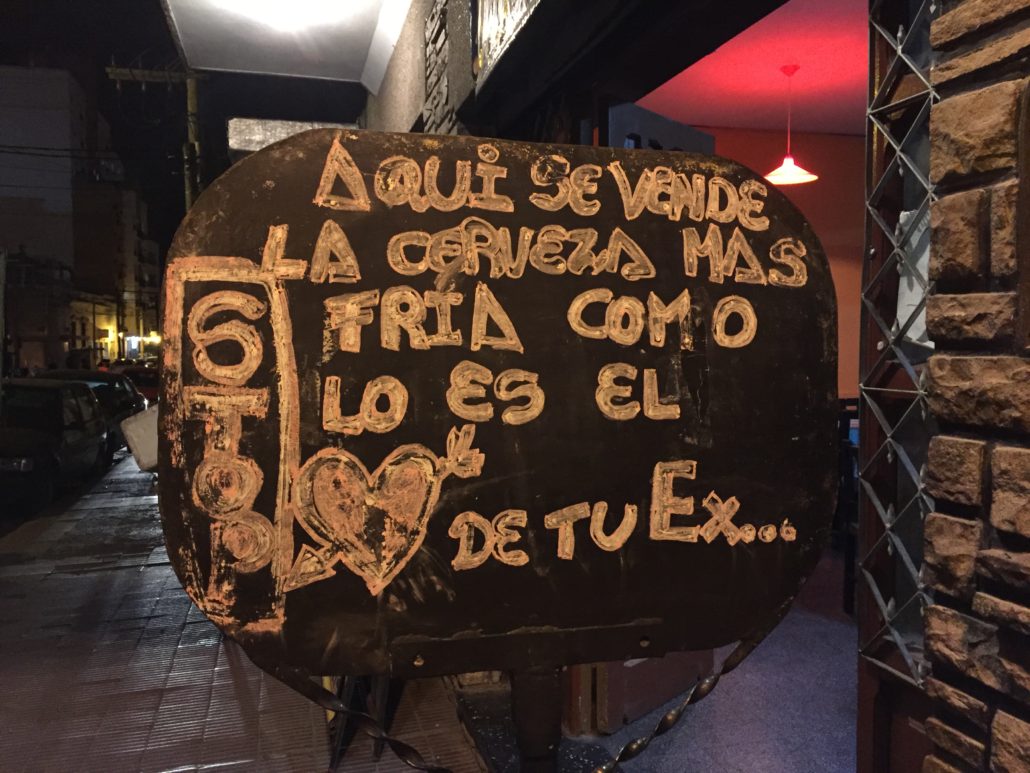 AQUI SE VENDE
LA CERVEZA MAS
FRIA COMO
LO ES EL
DE TU EX...
6TOP